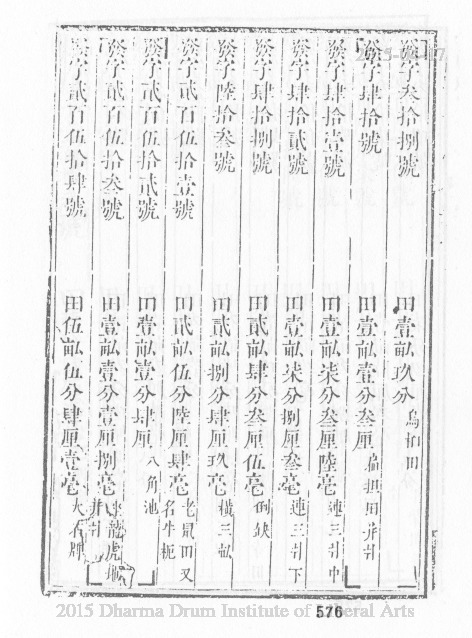 癸字叁拾捌號 田壹畝玖分 烏桕田
癸字肆拾號 田壹畝壹分叁厘 扁担田并計
癸字肆拾壹號 田壹畝柒分叁厘陸毫 連三計中
癸字肆拾貳號 田壹畝柒分捌厘叁毫 連三計下
癸字肆拾捌號 田貳畝肆分叁厘伍毫 倒缺
癸字陸拾叁號 田貳畝捌分肆厘玖毫 橫三畝
癸字貳百伍拾壹號 田貳畝伍分陸厘肆毫 老鼠田又名牛軛
癸字貳百伍拾貳號 田壹畝壹分肆厘 八角池
癸字貳百伍拾叁號 田壹畝壹分壹厘捌毫 龍虎
癸字貳百伍拾肆號 田伍畝伍分肆厘壹毫 大石牌
576
2015 Dharma Drum Institute of Liberal Arts